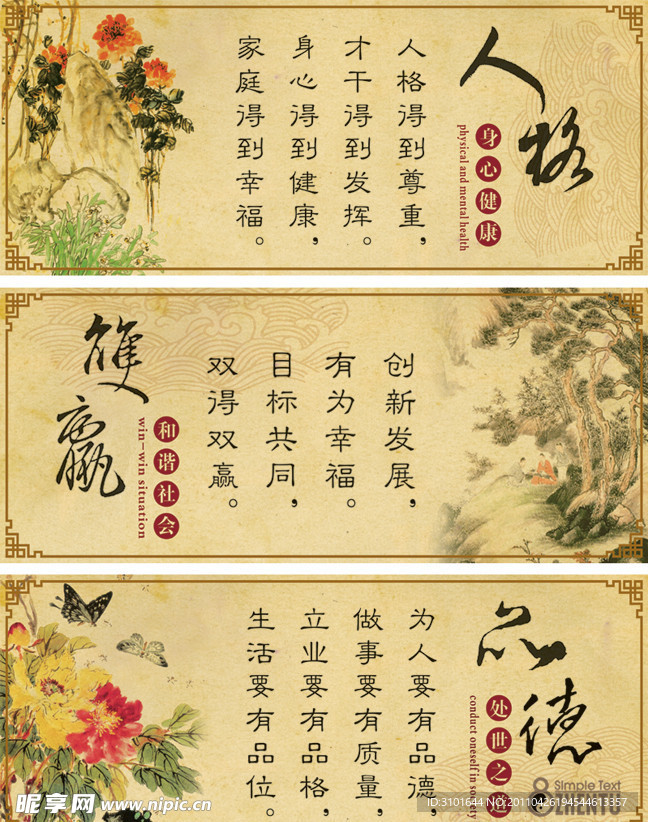 人格
身心健康
physical and mental health
人格得到尊重，
才干得到发挥。
身心得到健康，
家庭得到幸福。
雙贏
和谐社会
win-win situation
创新发展，
有为幸福。
目标共同，
双得双赢。
品德
处世之道
conduct oneself in society
为人要有品德，
做事要有质量，
立业要有品格，
生活要有品位。
Simple Text
ZHENTU
昵享网 www.nipic.cn
ID:3101644 NO:20110426194544613357